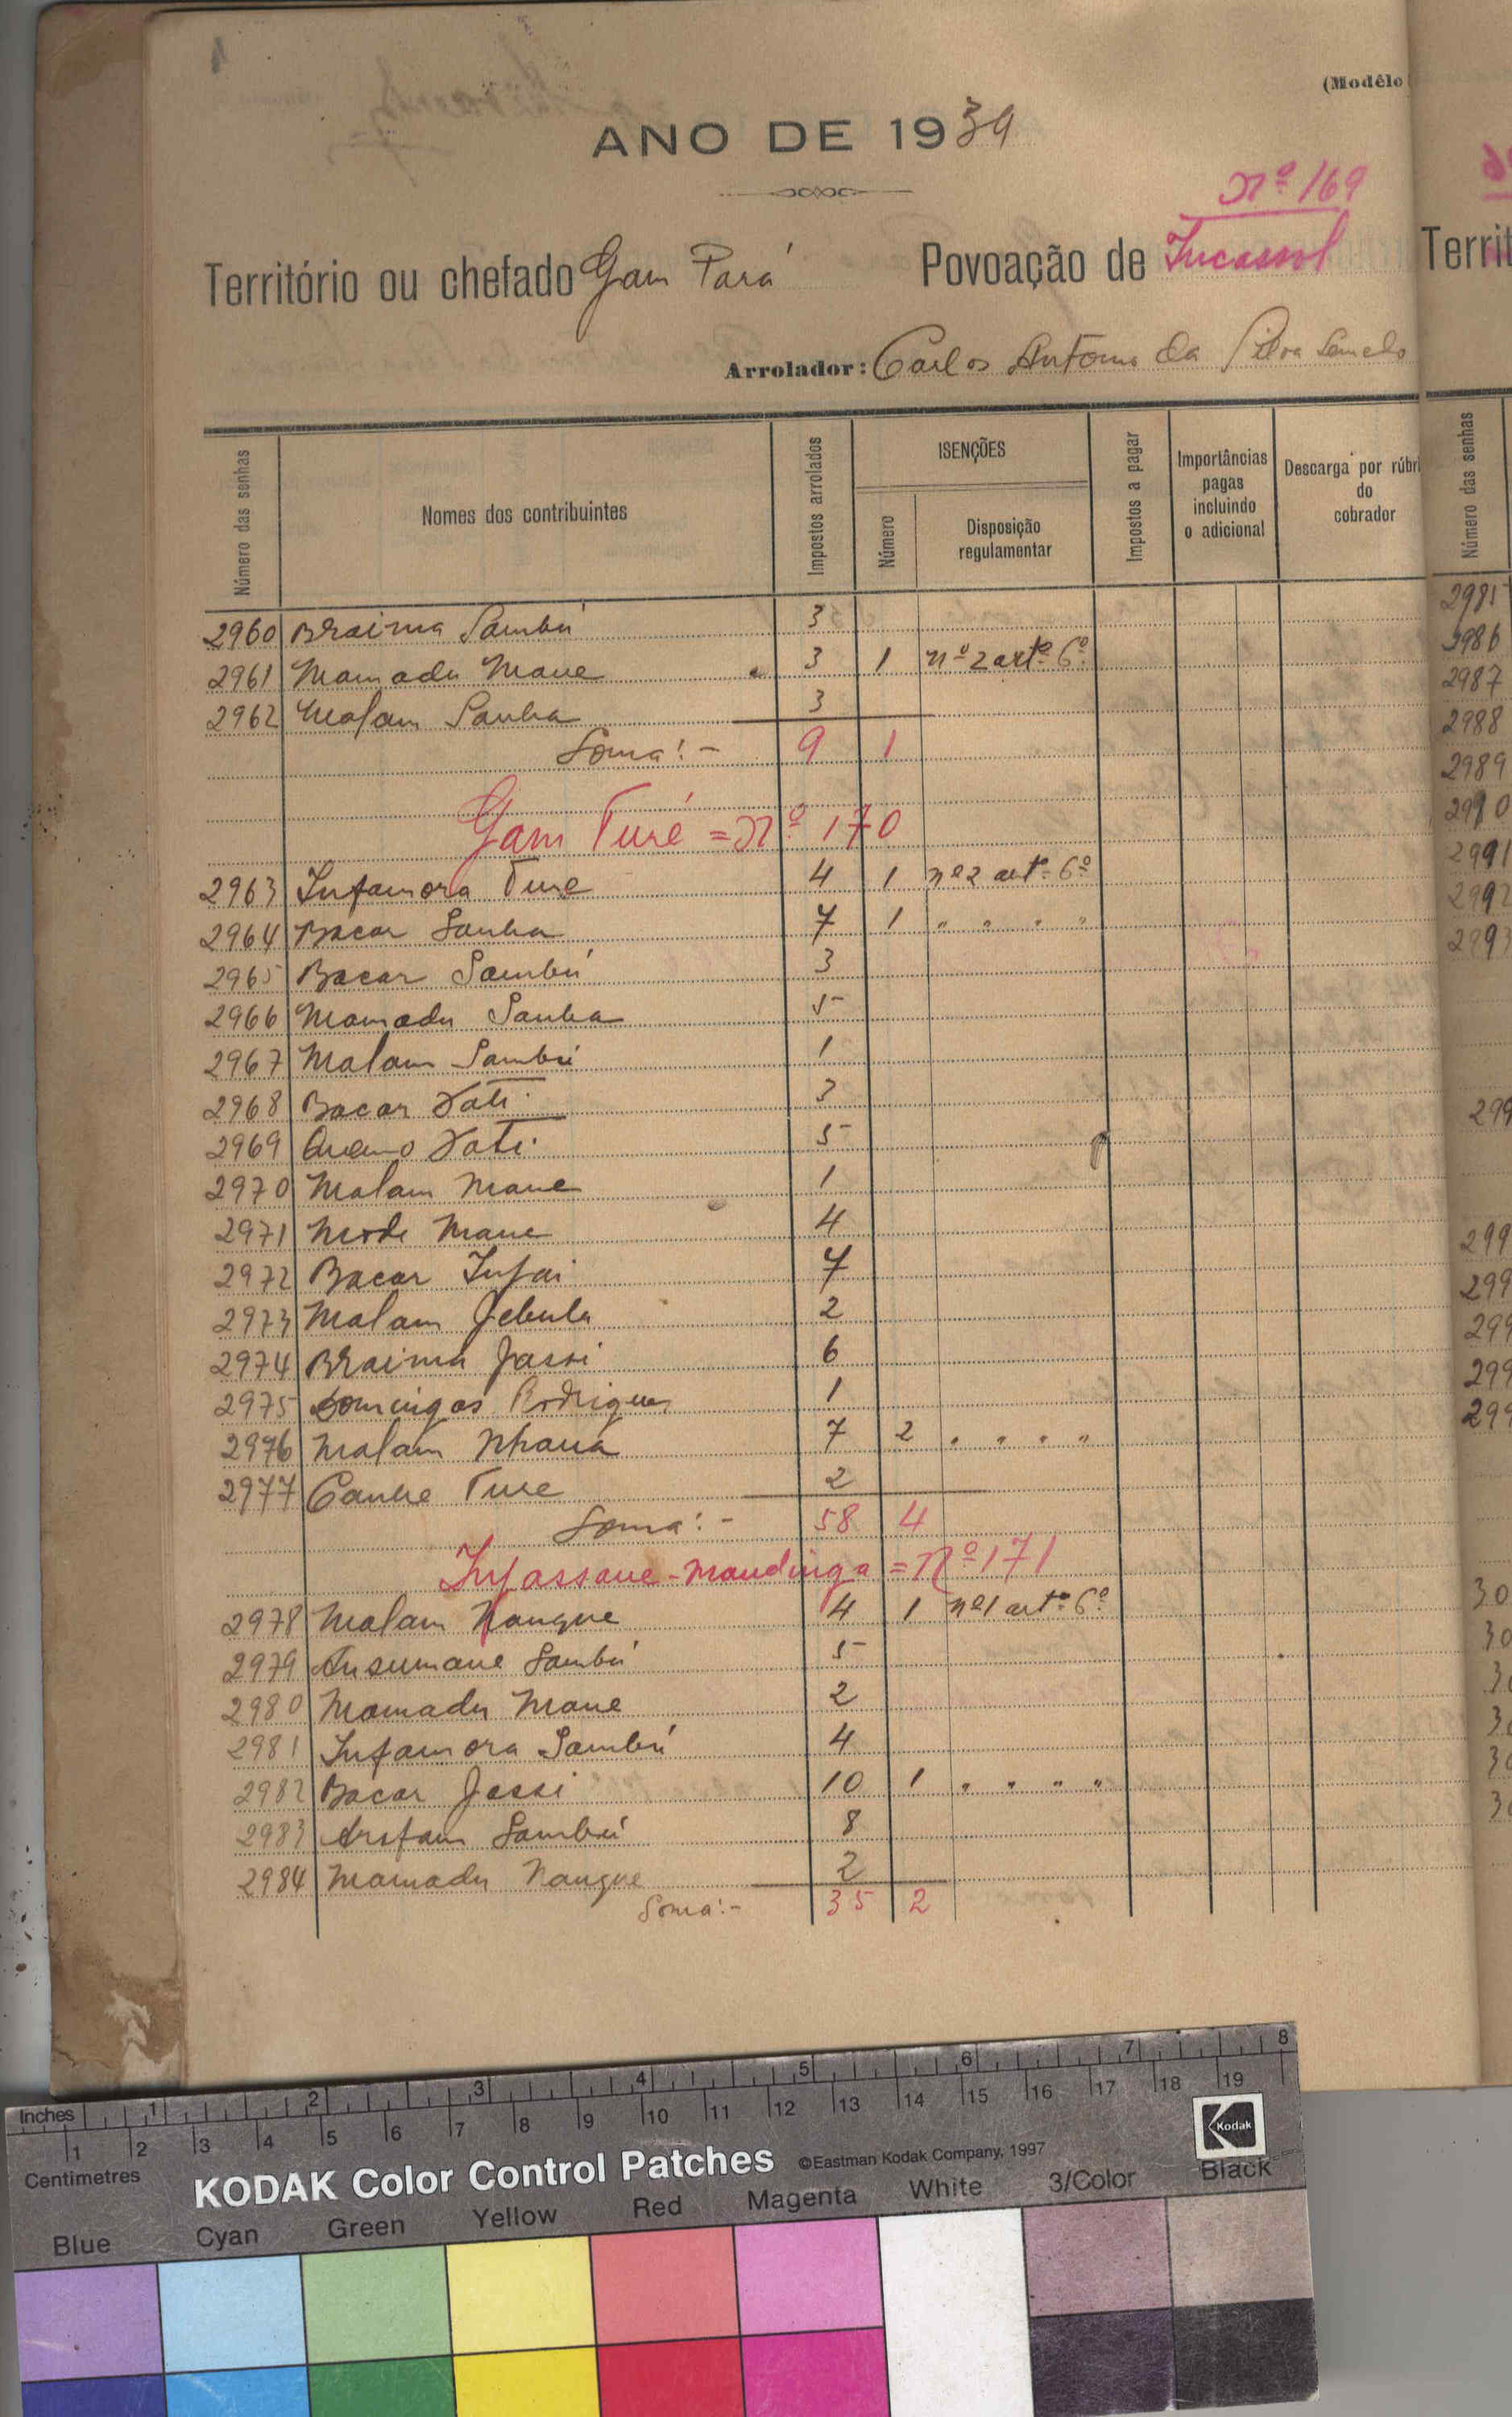 (Modêlo
ANO DE 1939
Nº 169
Território ou chefado Gam Pará Povoação de
Arrolador: Carlos Antonio da Silva
Número das senhas
Nomes dos contribuintes
Impostos arrolados
ISENÇÕES
Número
Disposição regulamentar
Impostos a pagar
Importâncias pagas incluindo o adicional
Descarga por rúbri do cobrador
2960 Braima Sambú 3
2961 Mamadu Mane 3 1 nº 2 artº 6º
2962 Malam Sanha 3
Soma:- 9 1
Gam Turé = Nº 170
2963 Infamora Ture 4 1 nº 2 artº 6º
2964 Bacar Sanha 7 1 " " " "
2965 Bacar Sambú 3
2966 Mamadu Sanha 5
2967 Malam Sambú 1
2968 Bacar Dati 3
2969 Dati 5
2970 Malam Mane 1
2971 Mode Mane 4
2972 Bacar Infai 7
2973 Malam 2
2974 Braima Jassi 6
2975 Domingos Rodrigues 1
2976 Malam Nhaná 7 2 " " " "
2977 Ture 2
Soma:- 58 4
Infassane-Mandinga = Nº 171
2978 Malam Nangue 4 1 nº 1 artº 6º
2979 Ansumane Sambú 5
2980 Mamadu Mane 2
2981 Infamora Sambú 4
2982 Bacar Jassi 10 1 " " " "
2983 Arafam Sambú 8
2984 Mamadu Nangue 2
Soma:- 35 2
Territ
Número das senhas
2985
2986
2987
2988
2989
2990
2991
2992
2993
299
299
299
299
299
299
30
30
Inches 1 2 3 4 5 6 7 8
1 2 3 4 5 6 7 8 9 10 11 12 13 14 15 16 17 18 19
Centimetres
KODAK Color Control Patches ©Eastman Kodak Company, 1997 Kodak
Blue Cyan Green Yellow Red Magenta White 3/Color Black